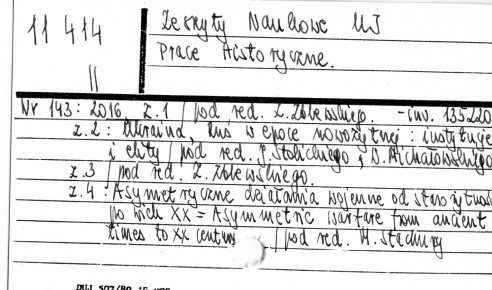 11 414
II
Zeszyty Naukowe UJ
Prace Historyczne.
Nr 143: 2016. z.1 / pod red. Z. Zblewskiego. - inw. 135220
z.2: Ukraina, Ruś w epoce nowożytnej: instytucje
i elity / pod red. J. Stolickiego, D. Michałowskiego
z.3 / pod red. Z. Zblewskiego.
z.4: Asymetryczne działania wojenne od starożytnośc
po wiek XX = Asymmetric warfare from ancient
times to XX century / pod red. M. Stachury